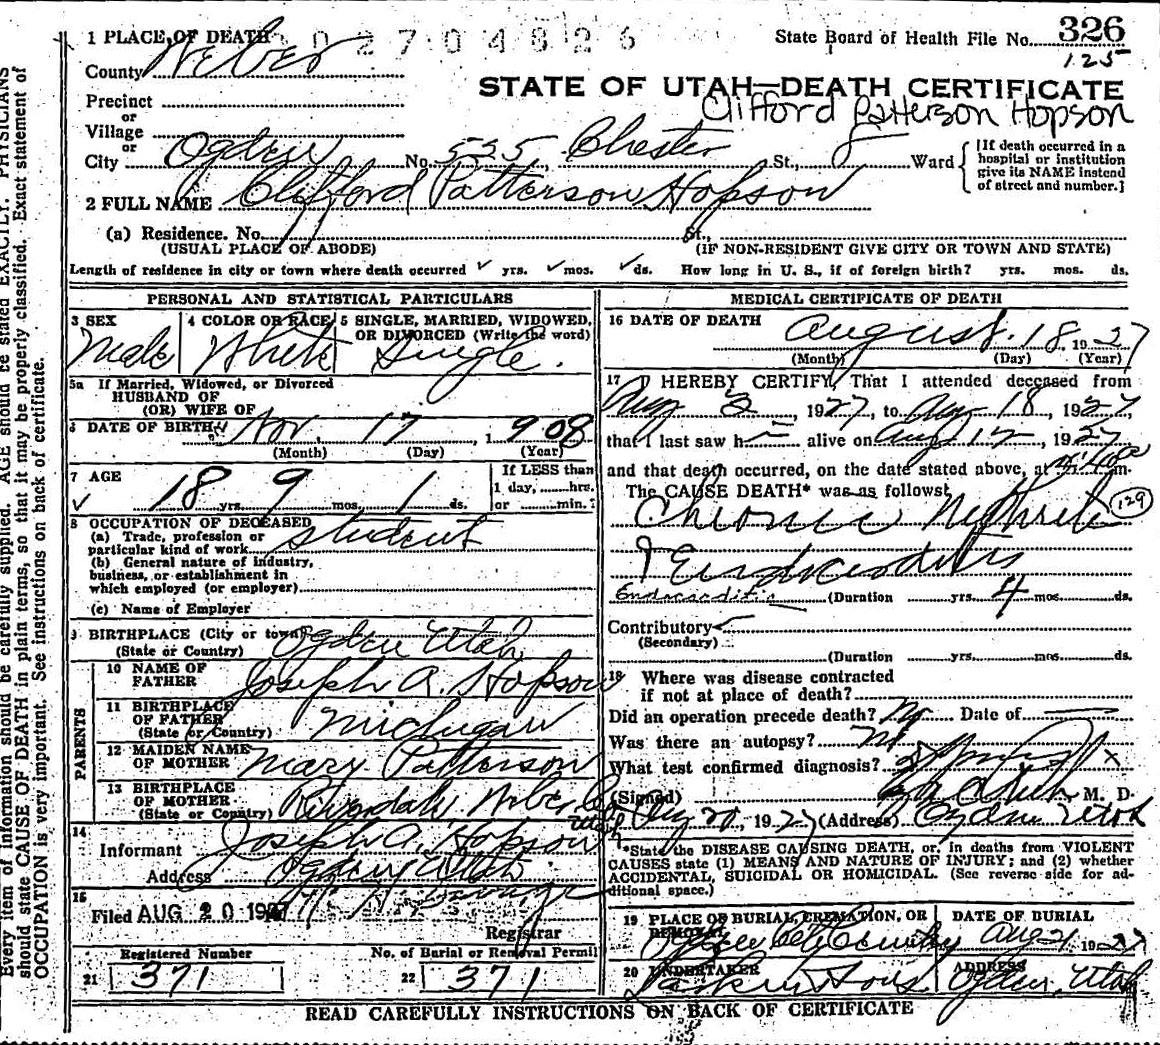 1 PLACE OF DEATH 1 0 2 7 0 4 8 2 6
State Board of Health File No. 326
125
County Weber
STATE OF UTAH—DEATH CERTIFICATE
Clifford Patterson Hopson
Precinct
or
Village
or
City Ogden No. 535 Chester St., 8 Ward
[If death occurred in a hospital or institution give its NAME instead of street and number.]
2 FULL NAME Clifford Patterson Hopson
(a) Residence. No. St.,
(USUAL PLACE OF ABODE) (IF NON-RESIDENT GIVE CITY OR TOWN AND STATE)
Length of residence in city or town where death occurred ✓ yrs. ✓ mos. ✓ ds. How long in U. S., if of foreign birth? yrs. mos. ds.
PERSONAL AND STATISTICAL PARTICULARS
3 SEX 4 COLOR OR RACE 5 SINGLE, MARRIED, WIDOWED,
OR DIVORCED (Write the word)
Male White Single.
5a If Married, Widowed, or Divorced
HUSBAND OF
(OR) WIFE OF
6 DATE OF BIRTH Nov. 17, 1908
(Month) (Day) (Year)
7 AGE If LESS than
1 day, hrs.
✓ 18 yrs. 9 mos. 1 ds. or min.?
8 OCCUPATION OF DECEASED
(a) Trade, profession or
particular kind of work student
(b) General nature of industry,
business, or establishment in
which employed (or employer)
(c) Name of Employer
9 BIRTHPLACE (City or town) Ogden Utah
(State or Country)
PARENTS
10 NAME OF
FATHER Joseph A. Hopson
11 BIRTHPLACE
OF FATHER
(State or Country) Michigan
12 MAIDEN NAME
OF MOTHER Mary Patterson
13 BIRTHPLACE
OF MOTHER
(State or Country) Riverdale, Weber Co Utah
14
Informant Joseph A. Hopson
Address Ogden Utah
15
Filed AUG 20 1927
Registrar
Registered Number No. of Burial or Removal Permit
21 371 22 371
MEDICAL CERTIFICATE OF DEATH
16 DATE OF DEATH August. 18, 1927
(Month) (Day) (Year)
17 I HEREBY CERTIFY, That I attended deceased from
Aug 2, 1927, to Aug 18, 1927,
that I last saw h alive on Aug 17, 1927
and that death occurred, on the date stated above, at m.
The CAUSE DEATH* was as follows:
Chronic Nephritis 129
& Endocarditis
Endocarditis (Duration yrs. 4 mos. ds.
Contributory
(Secondary)
(Duration yrs. mos. ds.
18 Where was disease contracted
if not at place of death?
Did an operation precede death? No Date of
Was there an autopsy? No
What test confirmed diagnosis?
(Signed) M. D.
Aug 20, 1927 (Address) Ogden Utah
*State the DISEASE CAUSING DEATH, or, in deaths from VIOLENT
CAUSES state (1) MEANS AND NATURE OF INJURY; and (2) whether
ACCIDENTAL, SUICIDAL OR HOMICIDAL. (See reverse side for ad-
ditional space.)
19 PLACE OF BURIAL, CREMATION, OR
REMOVAL
Ogden City Cemetery
DATE OF BURIAL
Aug 21 1927
20 UNDERTAKER
Larkin & Sons
ADDRESS
Ogden, Utah
READ CAREFULLY INSTRUCTIONS ON BACK OF CERTIFICATE
Every item of information should be carefully supplied. AGE should be stated EXACTLY. PHYSICIANS
should state CAUSE OF DEATH in plain terms, so that it may be properly classified. Exact statement of
OCCUPATION is very important. See instructions on back of certificate.